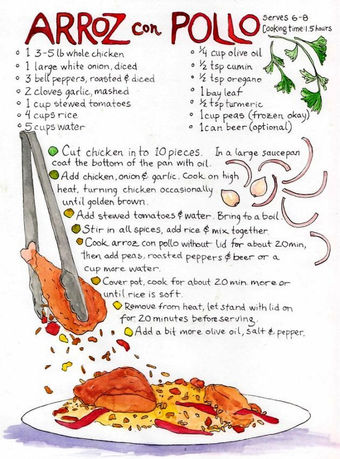 ARROZ con POLLO
Serves 6-8
Cooking time: 1.5 hours
1 3-5 lb whole chicken
1 large white onion, diced
3 bell peppers, roasted & diced
2 cloves garlic, mashed
1 cup stewed tomatoes
4 cups rice
5 cups water
1/4 cup olive oil
1/2 tsp cumin
1/2 tsp oregano
1 bay leaf
1/2 tsp turmeric
1 cup peas (frozen okay)
1 can beer (optional)
Cut chicken in to 10 pieces. In a large saucepan
coat the bottom of the pan with oil.
Add chicken, onion & garlic. Cook on high
heat, turning chicken occasionally
until golden brown.
Add stewed tomatoes & water. Bring to a boil
Stir in all spices, add rice & mix together.
Cook arroz con pollo without lid for about 20 min,
then add peas, roasted peppers & beer or a
cup more water.
Cover pot, cook for about 20 min more or
until rice is soft.
Remove from heat, let stand with lid on
for 20 minutes before serving.
Add a bit more olive oil, salt & pepper.